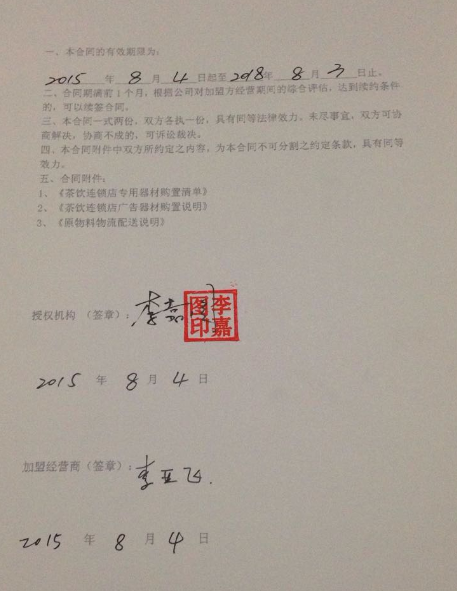 一、本合同的有效期限为:
2015 年 8 月 4 日起至 2018年 8 月 3 日止。
二、合同期满前1个月,根据公司对加盟方经营期间的综合评估,达到续约条件
的,可以续签合同。
三、本合同一式两份,双方各执一份,具有同等法律效力。未尽事宜,双方可协
商解决,协商不成的,可诉讼裁决。
四、本合同附件中双方所约定之内容,为本合同不可分割之约定条款,具有同等
效力。
五、合同附件:
1、《茶饮连锁店专用器材购置清单》
2、《茶饮连锁店广告器材购置说明》
3、《原物料物流配送说明》
授权机构 (签章): 李嘉图
李嘉图印
2015 年 8 月 4 日
加盟经营商(签章): 李亚飞.
2015 年 8 月 4 日